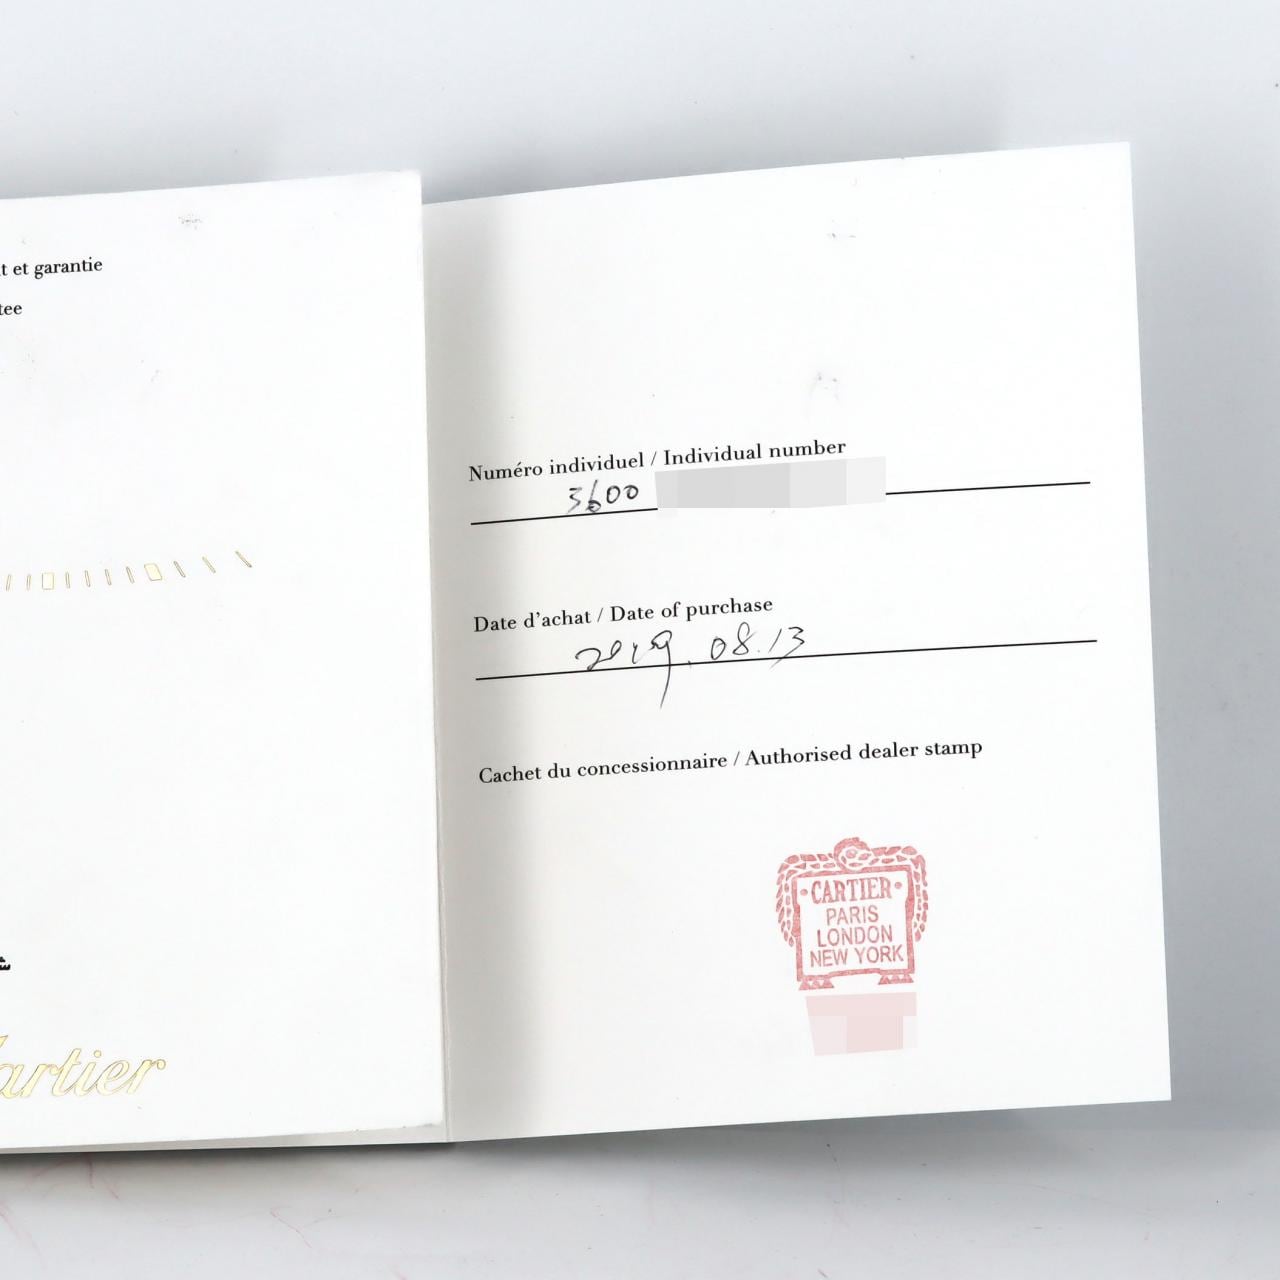 t et garantie
tee
artier
Numéro individuel / Individual number
3600
Date d'achat / Date of purchase
2019.08.13
Cachet du concessionnaire / Authorised dealer stamp
·CARTIER·
PARIS
LONDON
NEW YORK